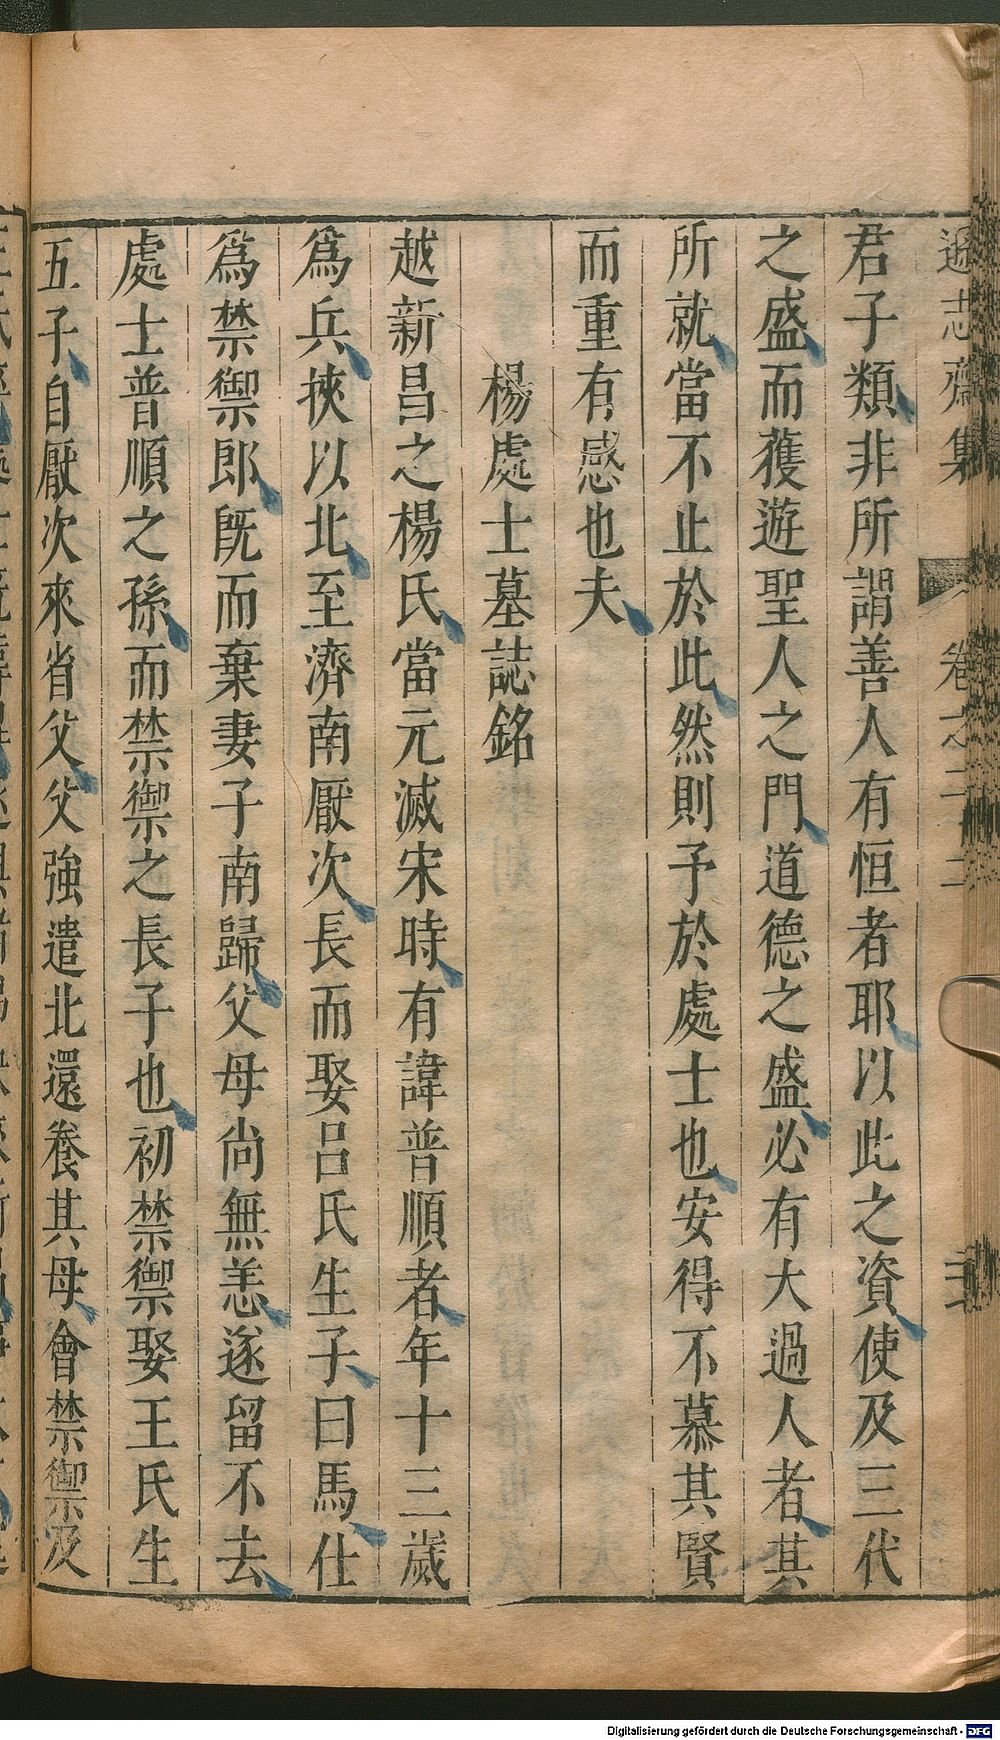 遜志齋集 卷之二十二
君子類非所謂善人有恒者耶以此之資使及三代
之盛而獲遊聖人之門道德之盛必有大過人者其
所就當不止於此然則予於處士也安得不慕其賢
而重有感也夫
楊處士墓誌銘
越新昌之楊氏當元滅宋時有諱普順者年十三歲
爲兵挾以北至濟南厭次長而娶呂氏生子曰馬仕
爲禁禦郎旣而棄妻子南歸父母尚無恙遂留不去
處士普順之孫而禁禦之長子也初禁禦娶王氏生
五子自厭次來省父父強遣北還養其母會禁禦及
Digitalisierung gefördert durch die Deutsche Forschungsgemeinschaft - DFG